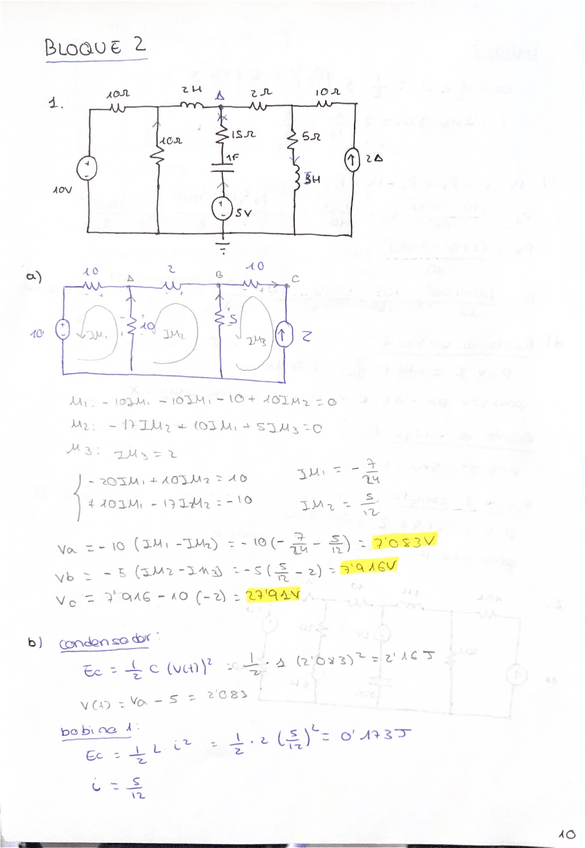 BLOQUE 2
1.
10Ω 2H A 2Ω 10Ω
10Ω 15Ω 5Ω
1F 3H 2A
10V 5V
a)
10 A 2 B 10 C
10 IM1 10 IM2 5 IM3 2
M1: -10IM1 -10IM1 -10 + 10IM2 = 0
M2: -17IM2 + 10IM1 + 5IM3 = 0
M3: IM3 = 2
-20IM1 + 10IM2 = 10 IM1 = -7/24
+10IM1 - 17IM2 = -10 IM2 = 5/12
Va = -10 (IM1 - IM2) = -10 (-7/24 - 5/12) = 7'083V
Vb = -5 (IM2 - IM3) = -5 (5/12 - 2) = 7'916V
Vc = 7'916 - 10 (-2) = 27'91V
b) condensador:
Ec = 1/2 C (V(t))² = 1/2 · 1 (2'083)² = 2'16 J
V(t) = Va - 5 = 2'083
bobina 1:
Ec = 1/2 L i² = 1/2 · 2 (5/12)² = 0'173J
i = 5/12
10